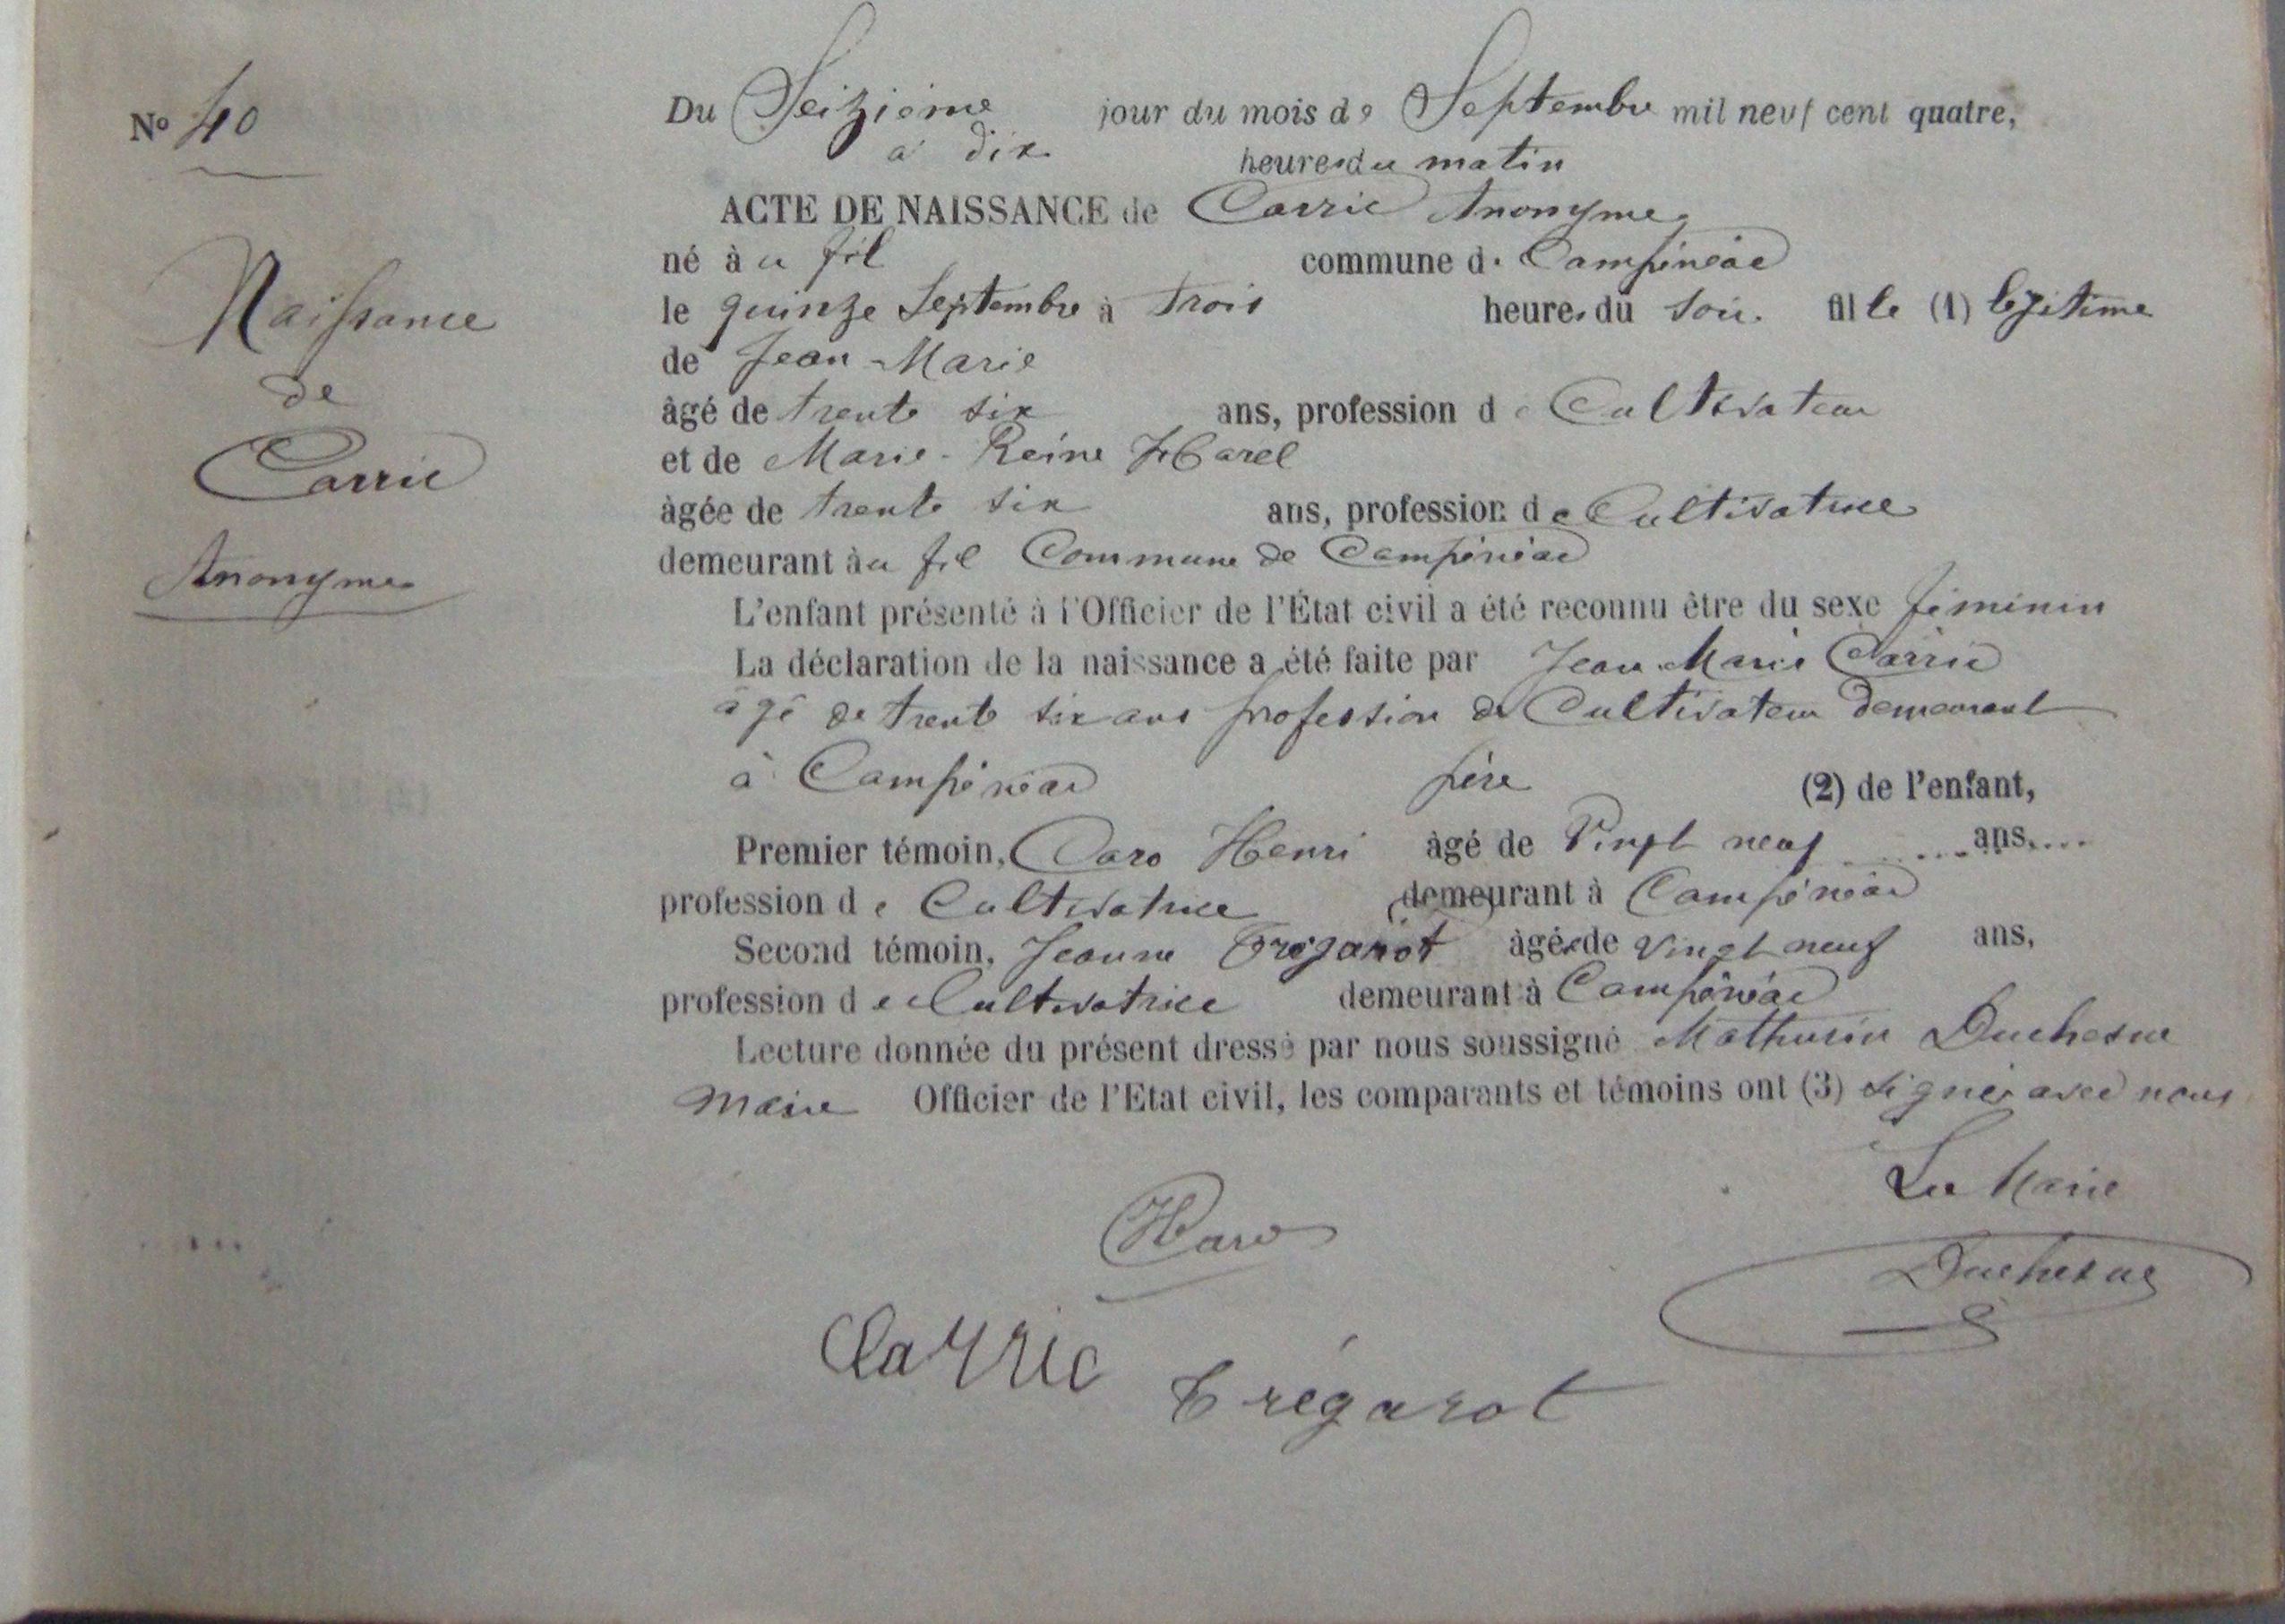 N° 40
Naissance
de
Carric
Anonyme
Du Seizième jour du mois de Septembre mil neuf cent quatre,
à dix heures du matin
ACTE DE NAISSANCE de Carric Anonyme
né à u fil commune de Campénéac
le quinze Septembre à trois heures du soir. fille (1) légitime
de Jean-Marie
âgé de trente six ans, profession de Cultivateur
et de Marie-Reine Harel
âgée de trente six ans, profession de Cultivatrice
demeurant àu fil Commune de Campénéac
L'enfant présenté à l'Officier de l'État civil a été reconnu être du sexe féminin
La déclaration de la naissance a été faite par Jean Marie Carric
âgé de trente six ans profession de Cultivateur demeurant
à Campénéac père (2) de l'enfant,
Premier témoin, Caro Henri âgé de Vingt neuf ans,
profession de Cultivatrice demeurant à Campénéac
Second témoin, Jeanne Trégarot âgée de vingt neuf ans,
profession de Cultivatrice demeurant à Campénéac
Lecture donnée du présent dressé par nous soussigné Mathurin Duchesne
Maire Officier de l'Etat civil, les comparants et témoins ont (3) signé avec nous
Le Maire
HCaro
Duchesne
Carric
Trégarot